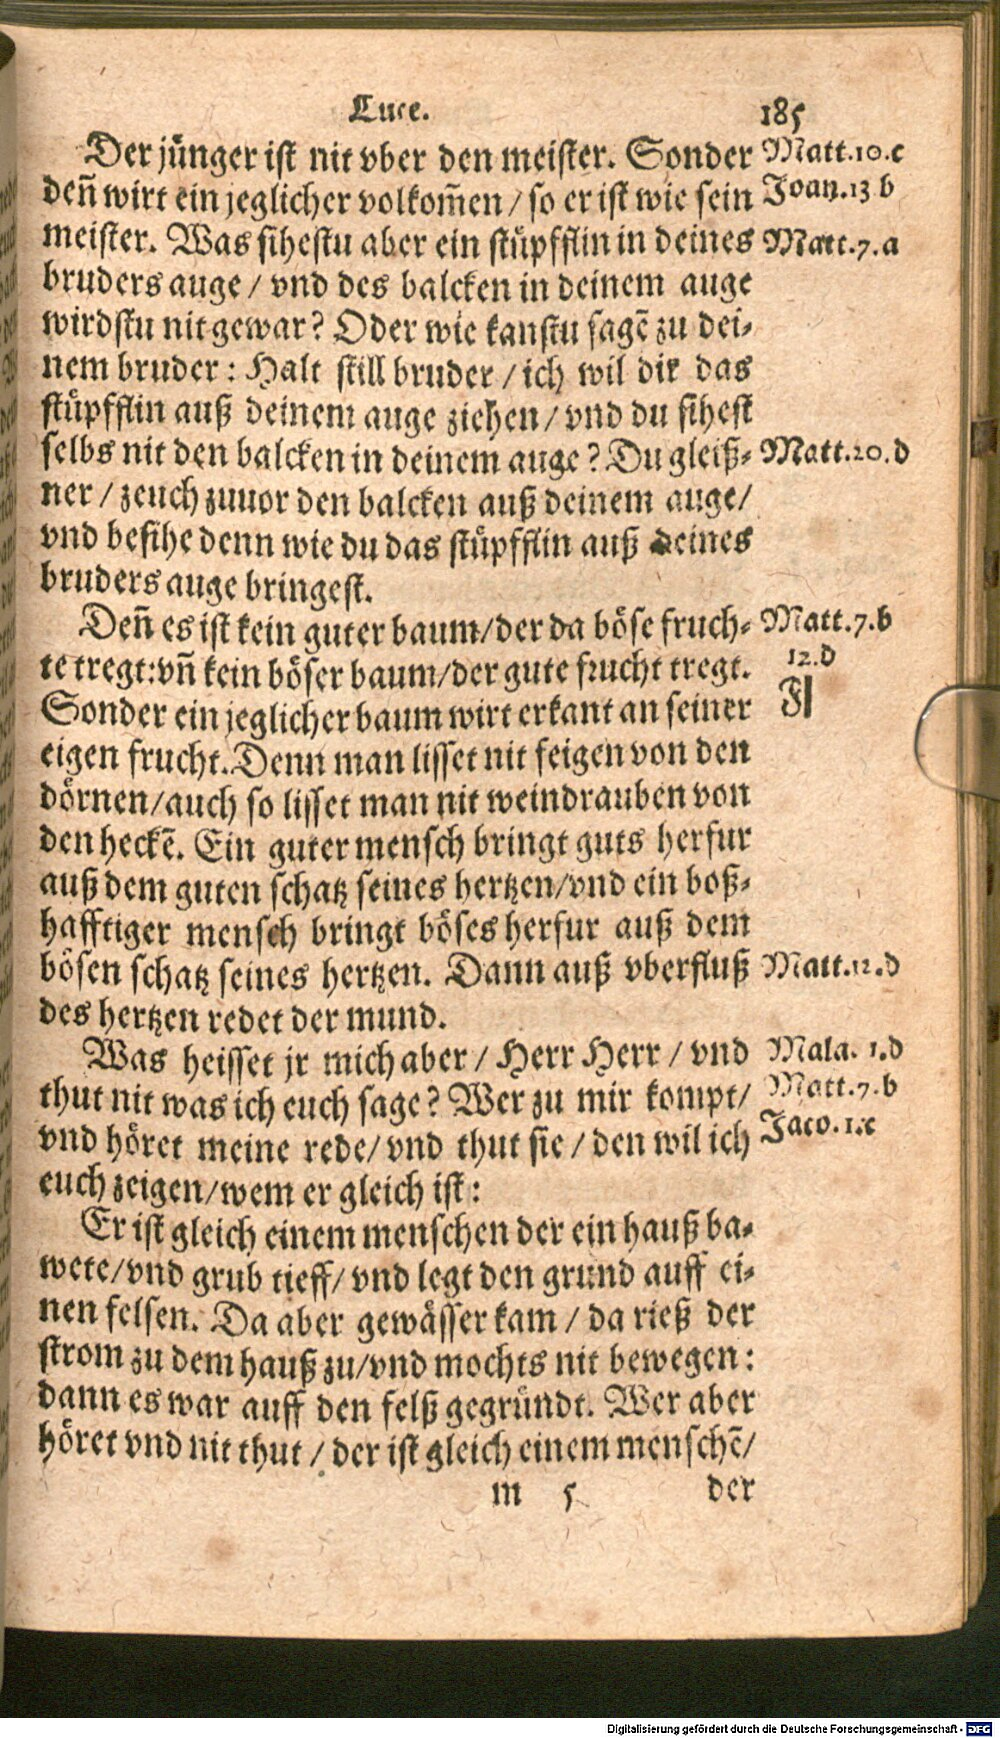 Luce. 185
Der jünger ist nit vber den meister. Sonder Matt.10.c
deñ wirt ein jeglicher volkom̃en / so er ist wie sein Joan.13 b
meister. Was sihestu aber ein stüpfflin in deines Matt.7.a
bruders auge / vnd des balcken in deinem auge
wirdstu nit gewar? Oder wie kanstu sagẽ zu dei-
nem bruder: Halt still bruder / ich wil dir das
stüpfflin auß deinem auge ziehen / vnd du sihest
selbs nit den balcken in deinem auge? Du gleiß- Matt.20.d
ner / zeuch zuuor den balcken auß deinem auge/
vnd besihe denn wie du das stüpfflin auß deines
bruders auge bringest.
Deñ es ist kein guter baum/der da böse fruch- Matt.7.b
te tregt:vñ kein böser baum/der gute frucht tregt. 12.d
Sonder ein jeglicher baum wirt erkant an seiner
eigen frucht. Denn man lisset nit feigen von den
dörnen/auch so lisset man nit weindrauben von
den heckẽ. Ein guter mensch bringt guts herfur
auß dem guten schatz seines hertzen/vnd ein boß-
hafftiger mensch bringt böses herfur auß dem
bösen schatz seines hertzen. Dann auß vberfluß Matt.12.d
des hertzen redet der mund.
Was heisset jr mich aber / Herr Herr / vnd Mala. 1.d
thut nit was ich euch sage? Wer zu mir kompt/ Matt.7.b
vnd höret meine rede/vnd thut sie / den wil ich Jaco.1.c
euch zeigen/wem er gleich ist:
Er ist gleich einem menschen der ein hauß ba-
wete/vnd grub tieff/ vnd legt den grund auff ei-
nen felsen. Da aber gewässer kam / da rieß der
strom zu dem hauß zu/vnd mochts nit bewegen:
dann es war auff den felß gegründt. Wer aber
höret vnd nit thut / der ist gleich einem menschẽ/
m 5 der
Digitalisierung gefördert durch die Deutsche Forschungsgemeinschaft - DFG